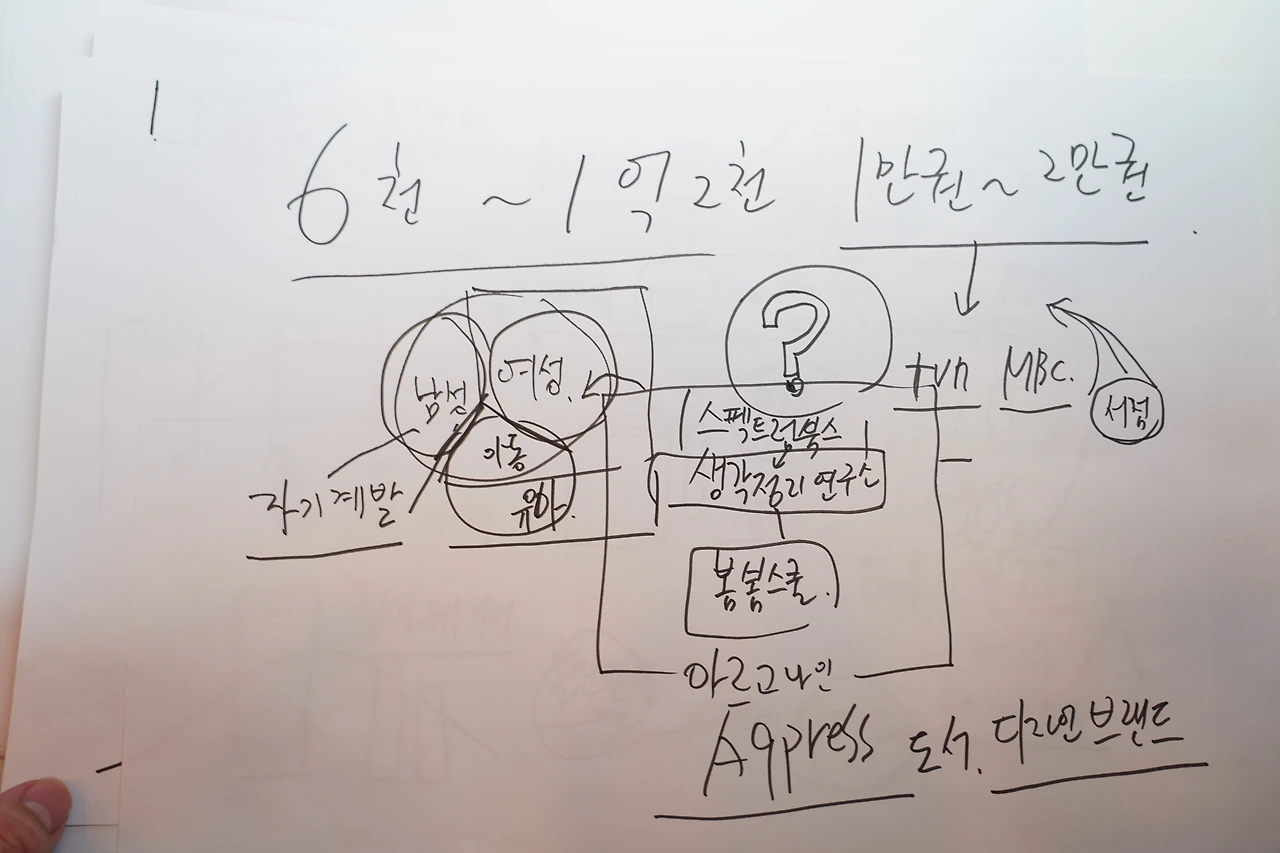 6천 ~ 1억 2천 1만권 ~ 2만권
?
남성 여성
tvn MBC. 서점
아동
유아.
자기계발
스펙트럼북스
생각정리연구소
봄봄스쿨.
아르고나인
A9press 도서. 디자인브랜드